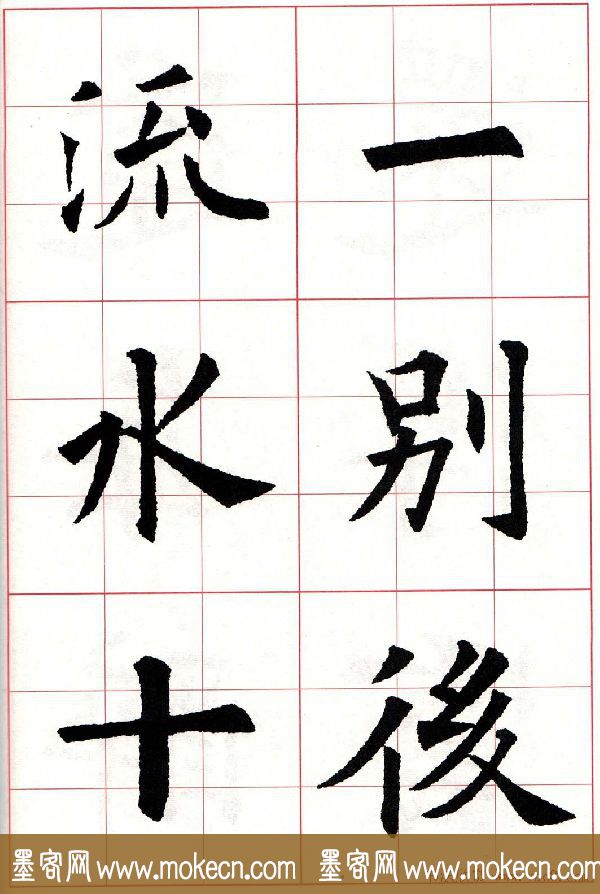 一别後
流水十
墨客网 www.mokecn.com 墨客网 www.mokecn.com